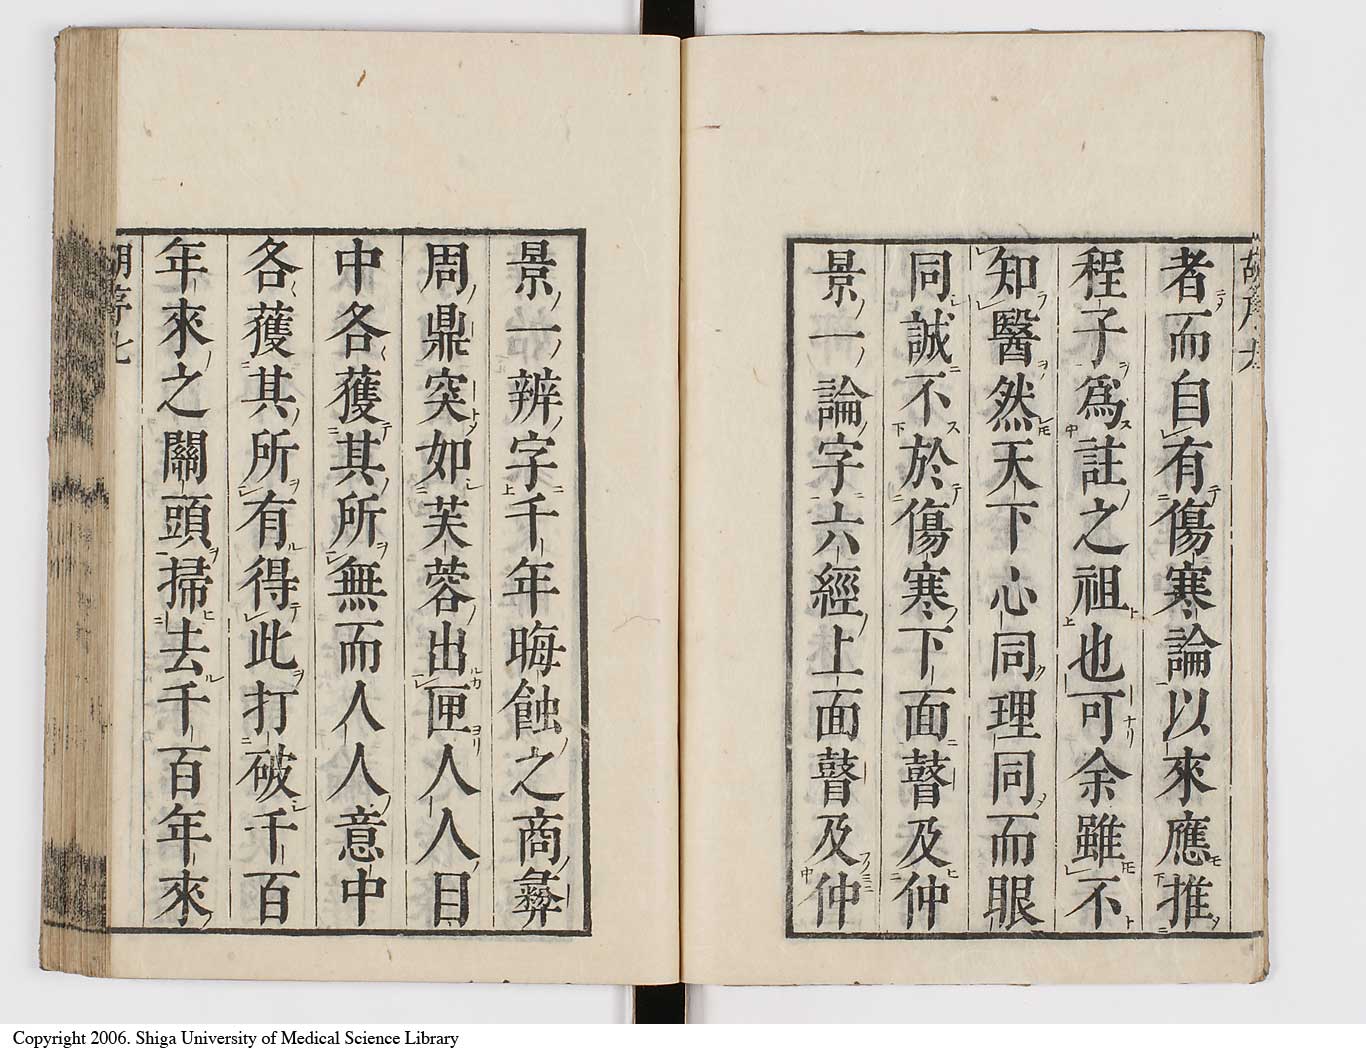 者而自有傷寒論以來應推
程子爲註之祖也可余雖不
知醫然天下心同理同而眼
同誠不於傷寒下面瞽及仲
景一論字六經上面瞽及仲
景一辨字千年晦蝕之商彝
周鼎突如芙蓉出匣人人目
中各獲其所無而人人意中
各獲其所有得此打破千百
年來之關頭掃去千百年來
Copyright 2006. Shiga University of Medical Science Library